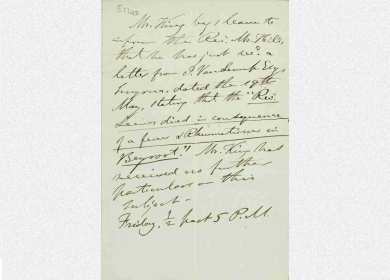 Mr. King begs leave to
inform the Rev. Mr. Hill,
that he has just recd. a
letter from J. Vanlennep Esqr
Smyrna, dated the 19th
May, stating that the "Rev.
Lewis died in consequence
of a fever & Rheumatism in
Beyroot." Mr. King has
received no further
particulars on this
subject -
Friday, ½ past 5 P.M.